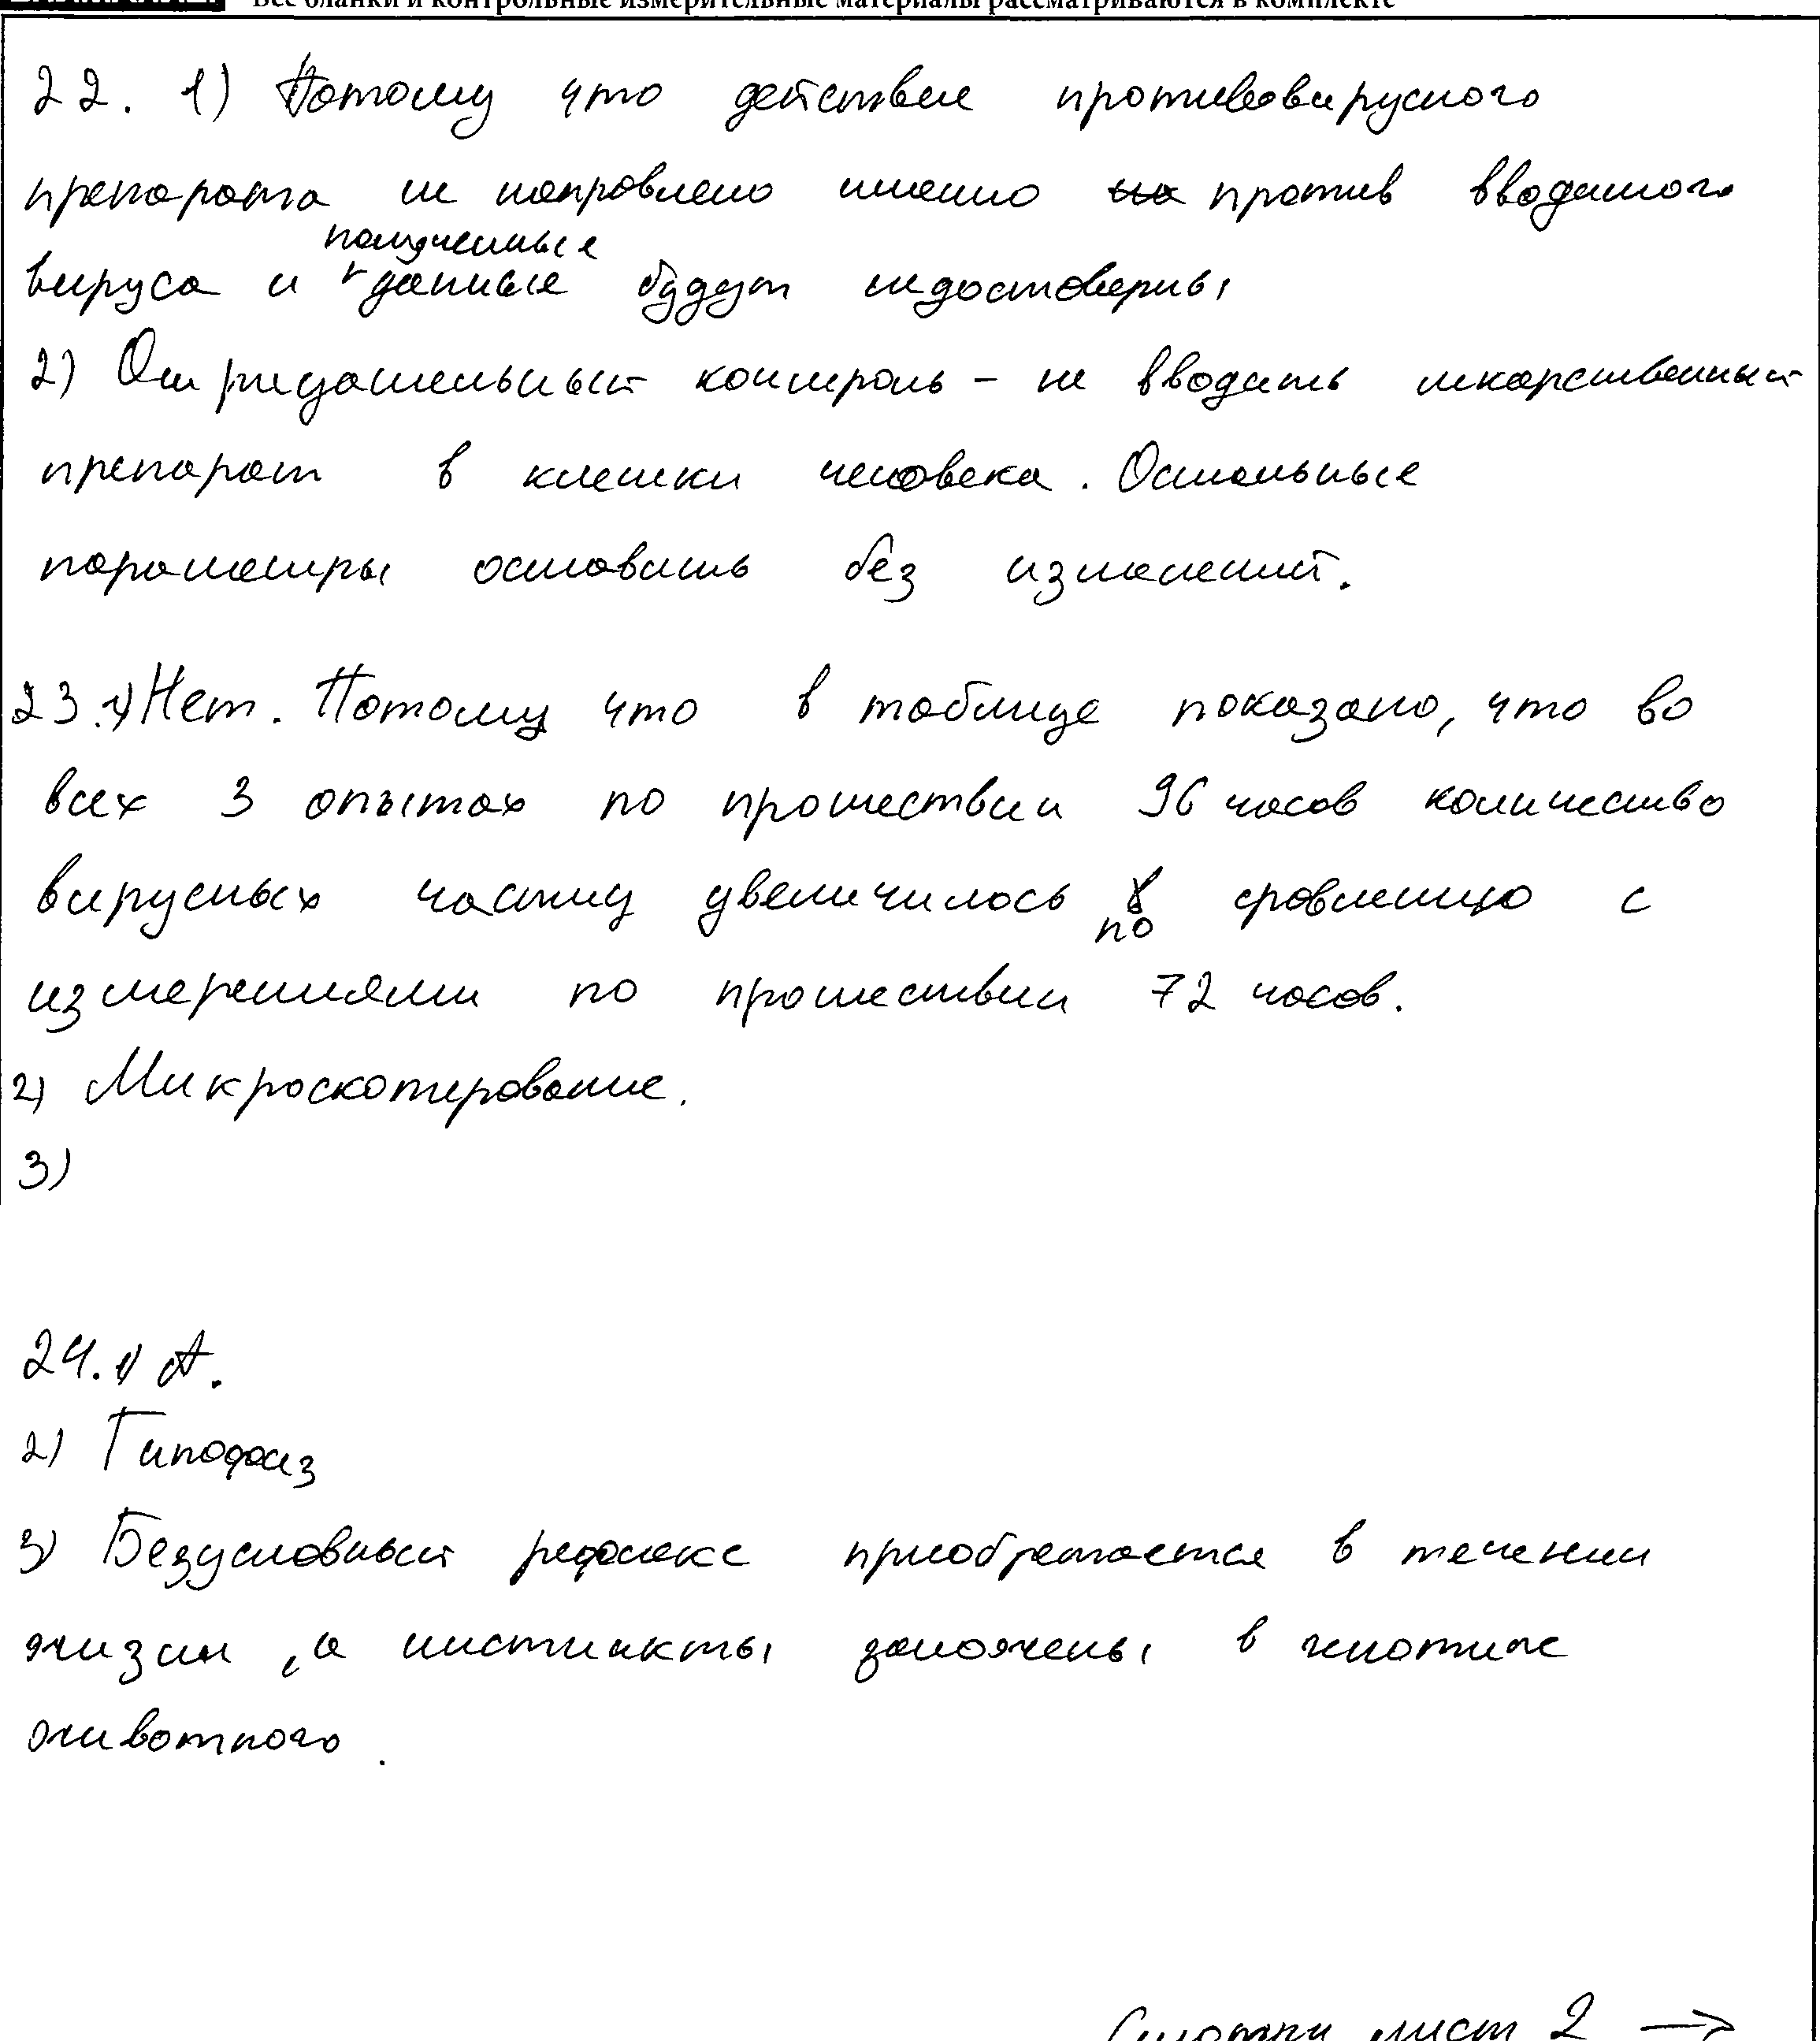 Все бланки и контрольные измерительные материалы рассматриваются в комплекте
22. 1) Потому что действие противовирусного
препарата не направлено именно против вводимого
полученные
вируса и данные будут недостоверны
2) Отрицательный контроль - не вводить лекарственный
препарат в клетки человека. Остальные
параметры оставить без изменений.
23. 1) Нет. Потому что в таблице показано, что во
всех 3 опытах по прошествии 96 часов количество
вирусных частиц увеличилось по сравнению с
измерениями по прошествии 72 часов.
2) Микроскопирование.
3)
24. 1) А.
2) Гипофиз
3) Безусловный рефлекс приобретается в течении
жизни, а инстинкты заложены в генотипе
животного.
Смотри лист 2 →